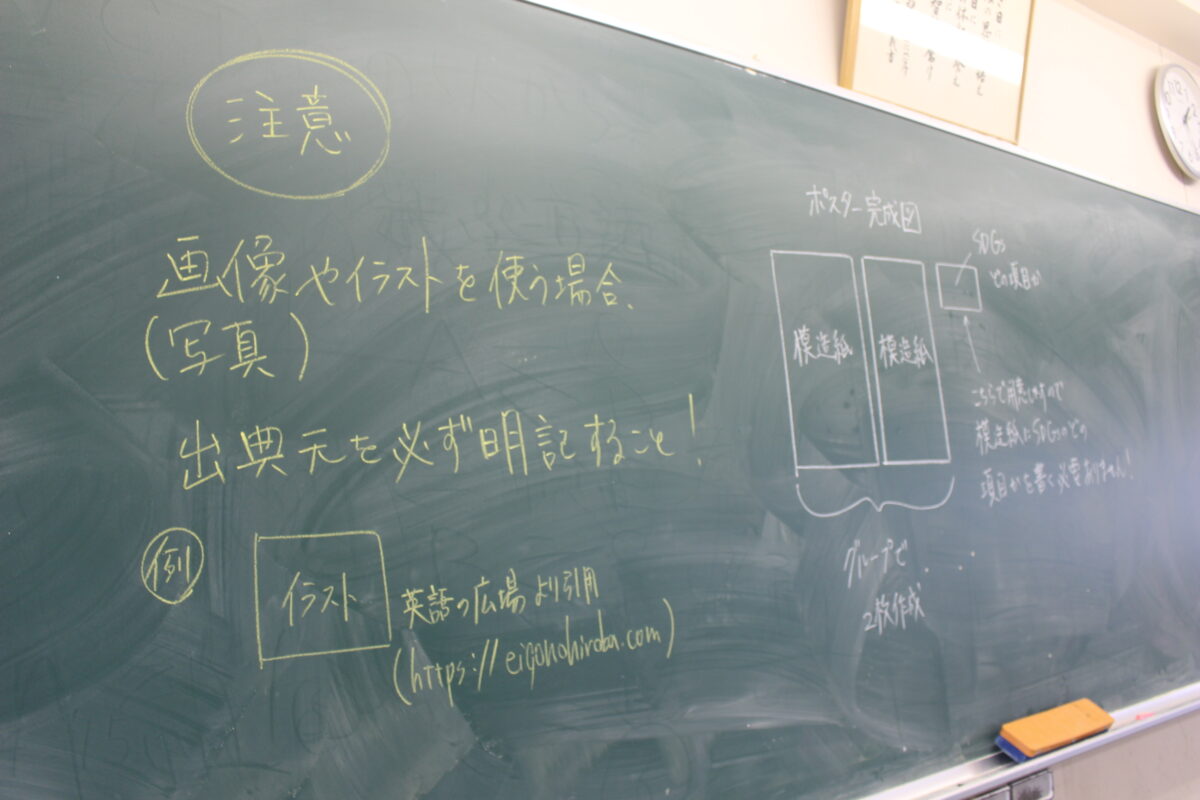 注意
画像やイラストを使う場合、
(写真)
出典元を必ず明記すること!
例
イラスト
英語の広場より引用
(https://eigonohiroba.com)
ポスター完成図
SDGs
どの項目か
模造紙
模造紙
こちらで用意しますので
模造紙にSDGsのどの
項目かを書く必要ありません!
グループで
2枚作成
12